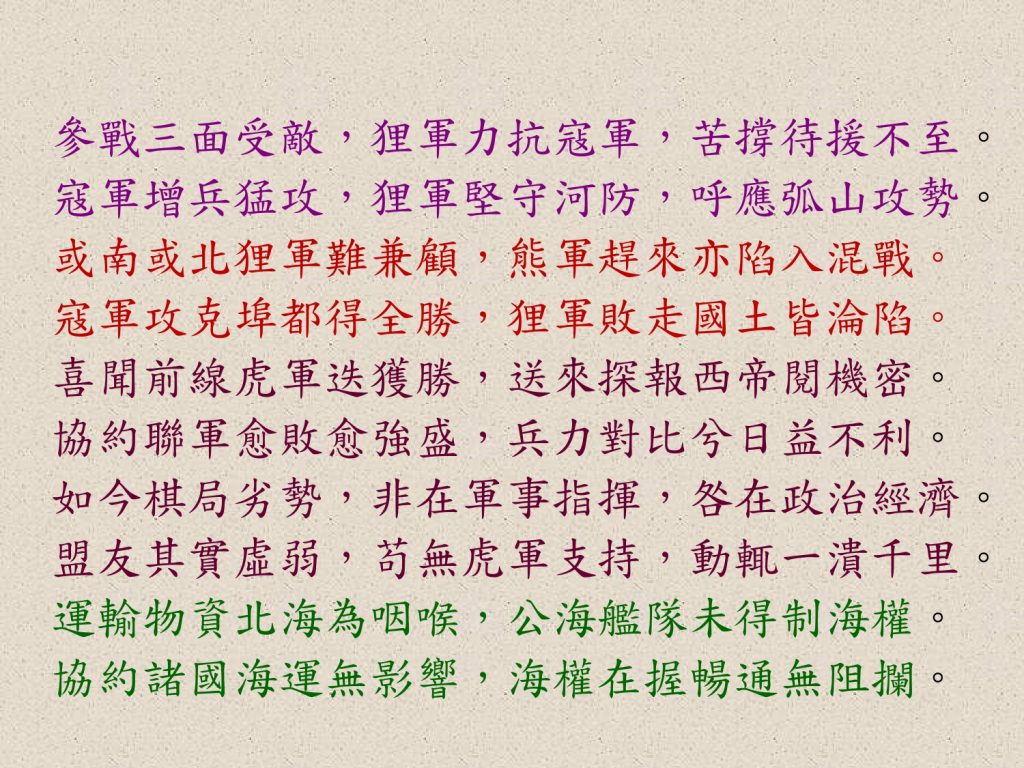 參戰三面受敵，狸軍力抗寇軍，苦撐待援不至。
寇軍增兵猛攻，狸軍堅守河防，呼應弧山攻勢。
或南或北狸軍難兼顧，熊軍趕來亦陷入混戰。
寇軍攻克埠都得全勝，狸軍敗走國土皆淪陷。
喜聞前線虎軍迭獲勝，送來探報西帝閱機密。
協約聯軍愈敗愈強盛，兵力對比兮日益不利。
如今棋局劣勢，非在軍事指揮，咎在政治經濟。
盟友其實虛弱，苟無虎軍支持，動輒一潰千里。
運輸物資北海為咽喉，公海艦隊未得制海權。
協約諸國海運無影響，海權在握暢通無阻攔。